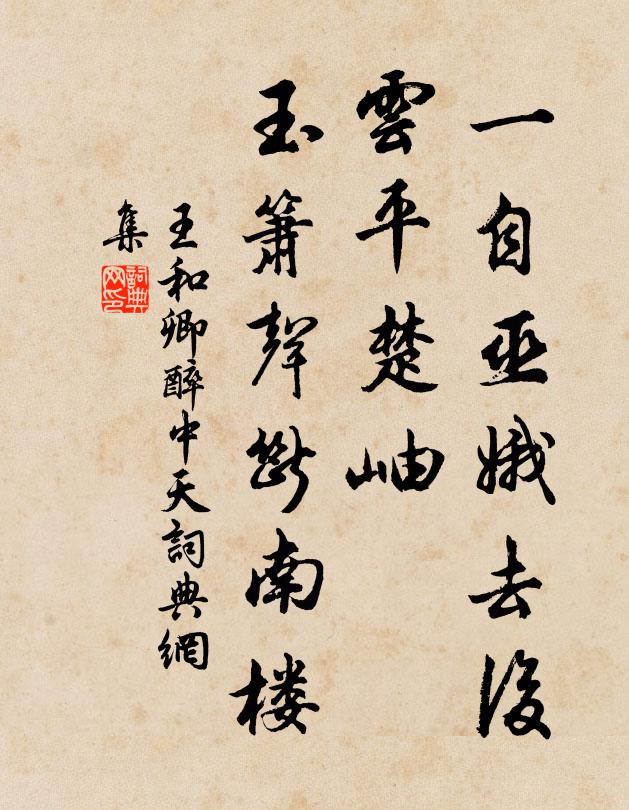 一自巫娥去後
雲平楚岫
玉簫聲斷南楼
王和卿醉中天詞典網
集
詞典网印